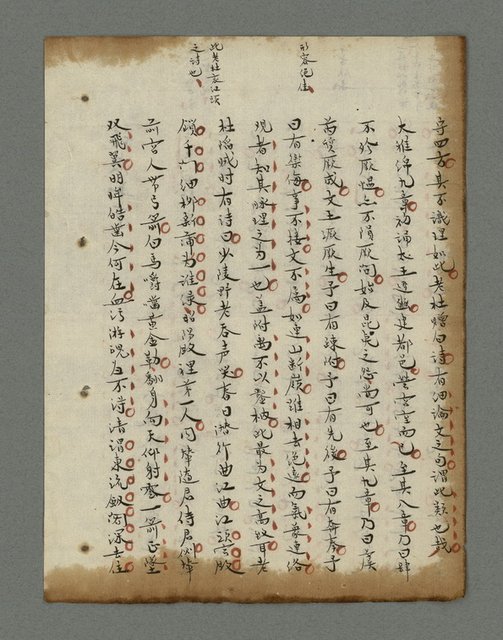 形容絕佳
此老杜哀江頭
之詩也
守四方其不識理如此老杜贈白詩有細論文之句謂此類也哉
大雅綿九章初誦太王遷豳建都邑營宮室而已至其八章乃曰肆
不殄厥慍亦不隕厥問始及昆夷之怨尚可也至其九章乃曰虞
芮質厥成文王蹶厥生予曰有疎附予曰有先後予曰有奔奏予
曰有禦侮事不接文不屬如連山斷嶺雖相去絕遠而氣象連絡
觀者知其脉理之為一也蓋附离不以鑿枘此最為文之高致耳老
杜陷賊時有詩曰少陵野老吞声哭春日潛行曲江曲江頭宮殿
鎖千門細柳新蒲為誰綠昭陽殿裡第一人同輦隨君侍君側輦
前宮人帶弓箭白馬嚼齧黃金勒翻身向天仰射雲一箭正墜
双飛翼明眸皓齒今何在血污游魂歸不得清渭東流劍閣深去住